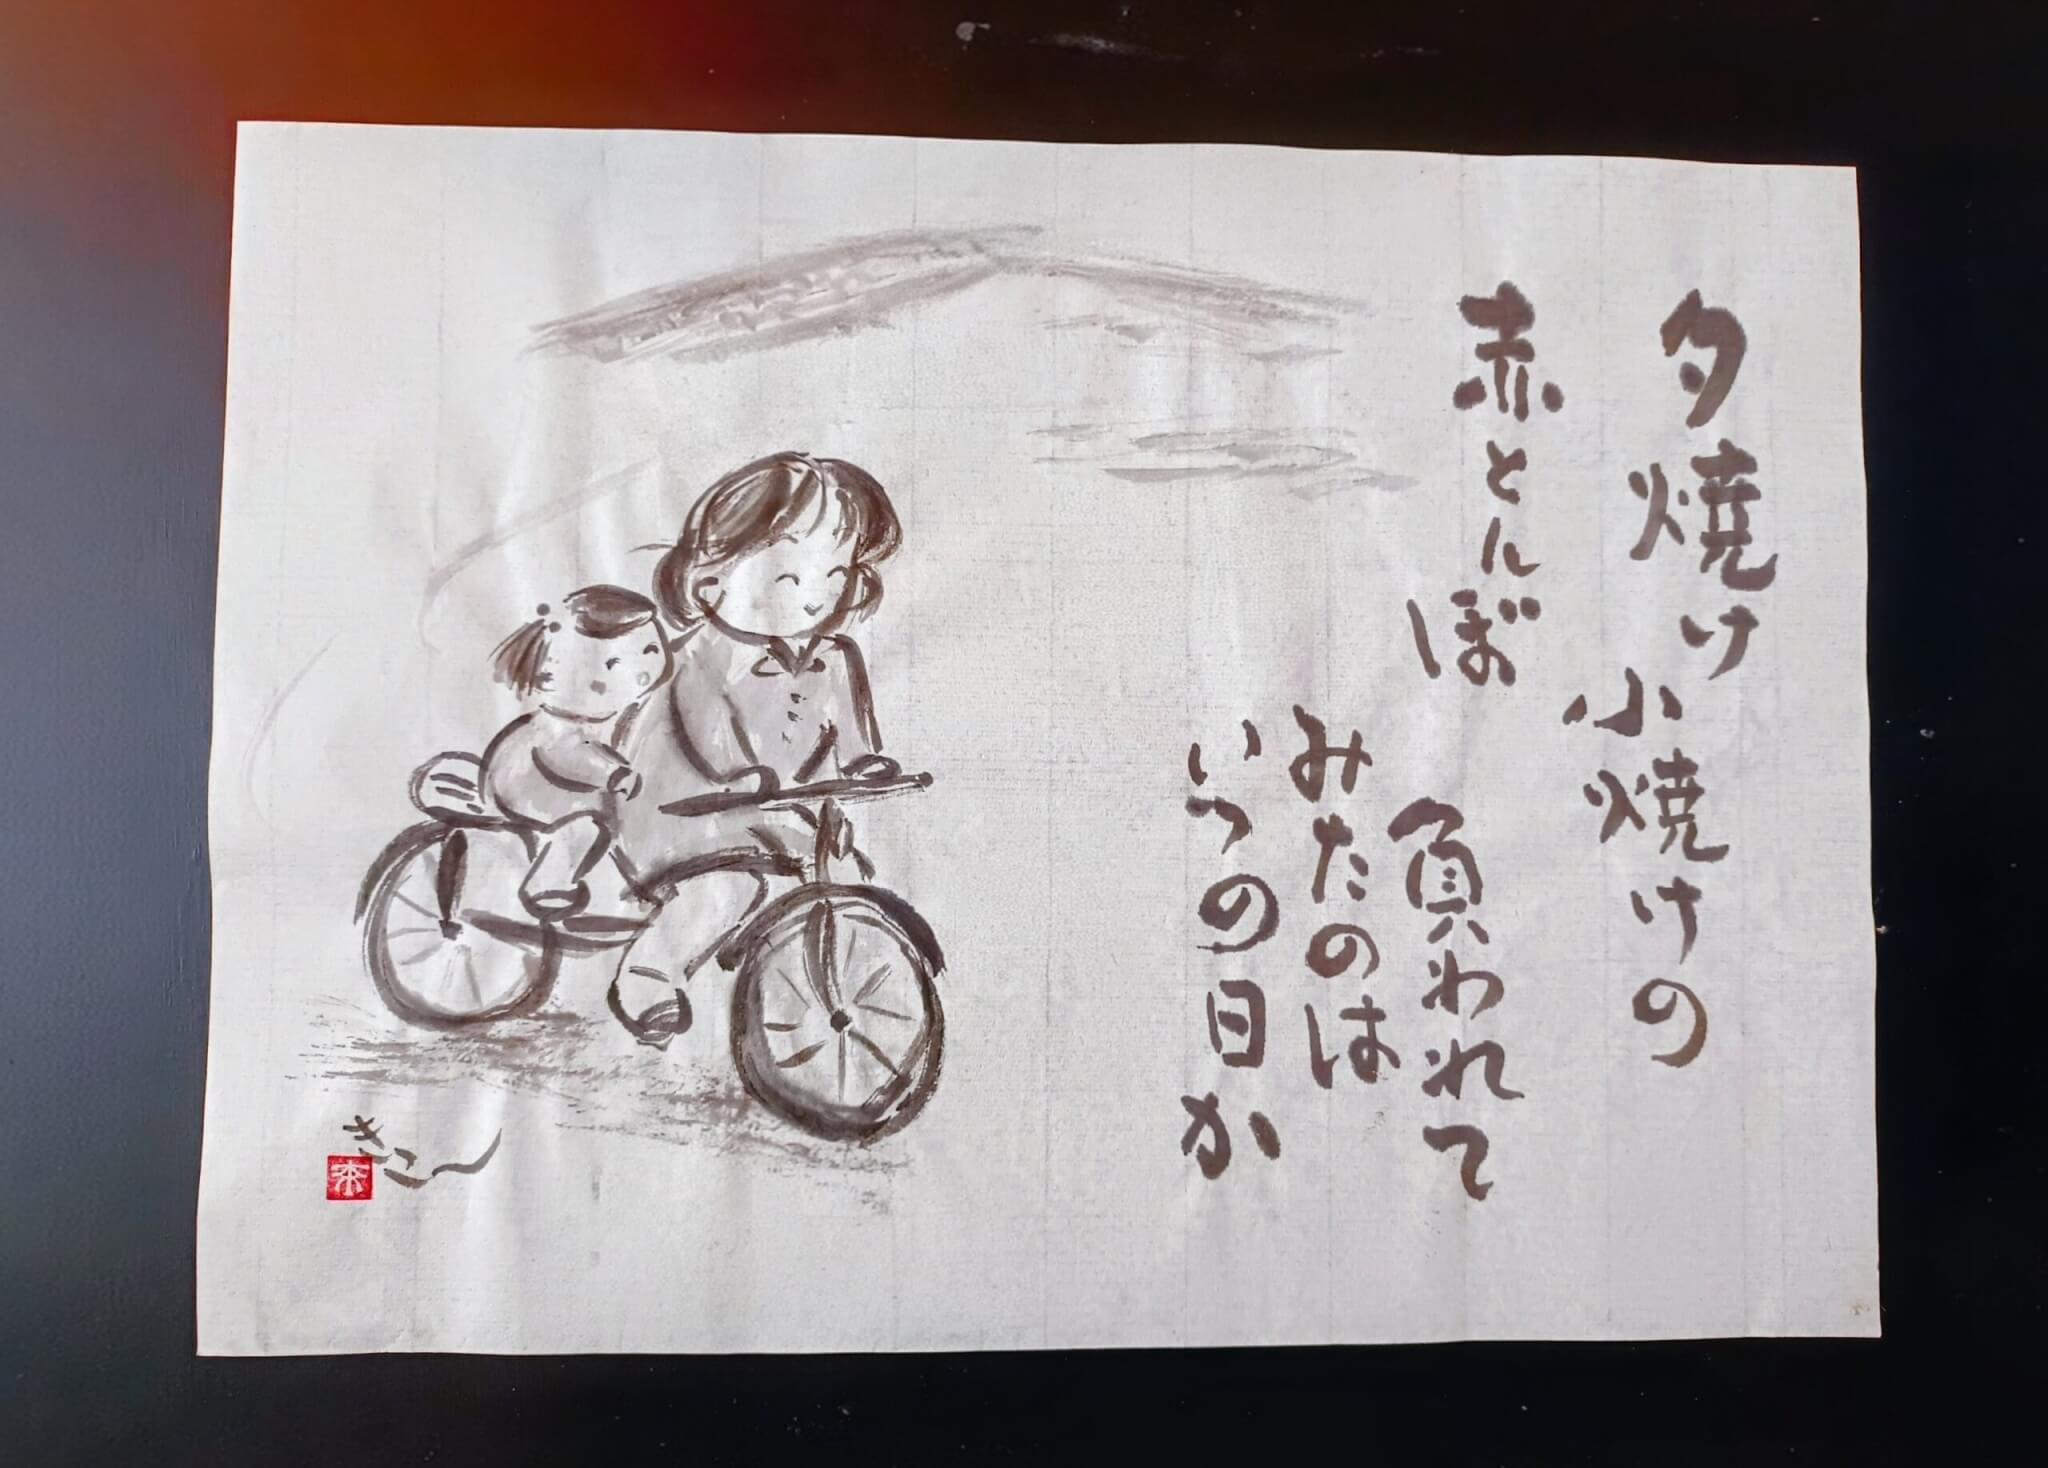 夕焼け小焼けの
赤とんぼ
負われて
みたのは
いつの日か
きこ